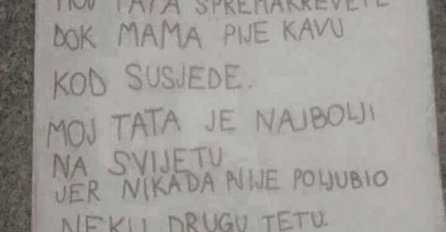 MOJ TATA SPREMA KREVETE
DOK MAMA PIJE KAVU
KOD SUSJEDE.
MOJ TATA JE NAJBOLJI
NA SVIJETU
JER NIKADA NIJE POLJUBIO
NEKU DRUGU TETU.